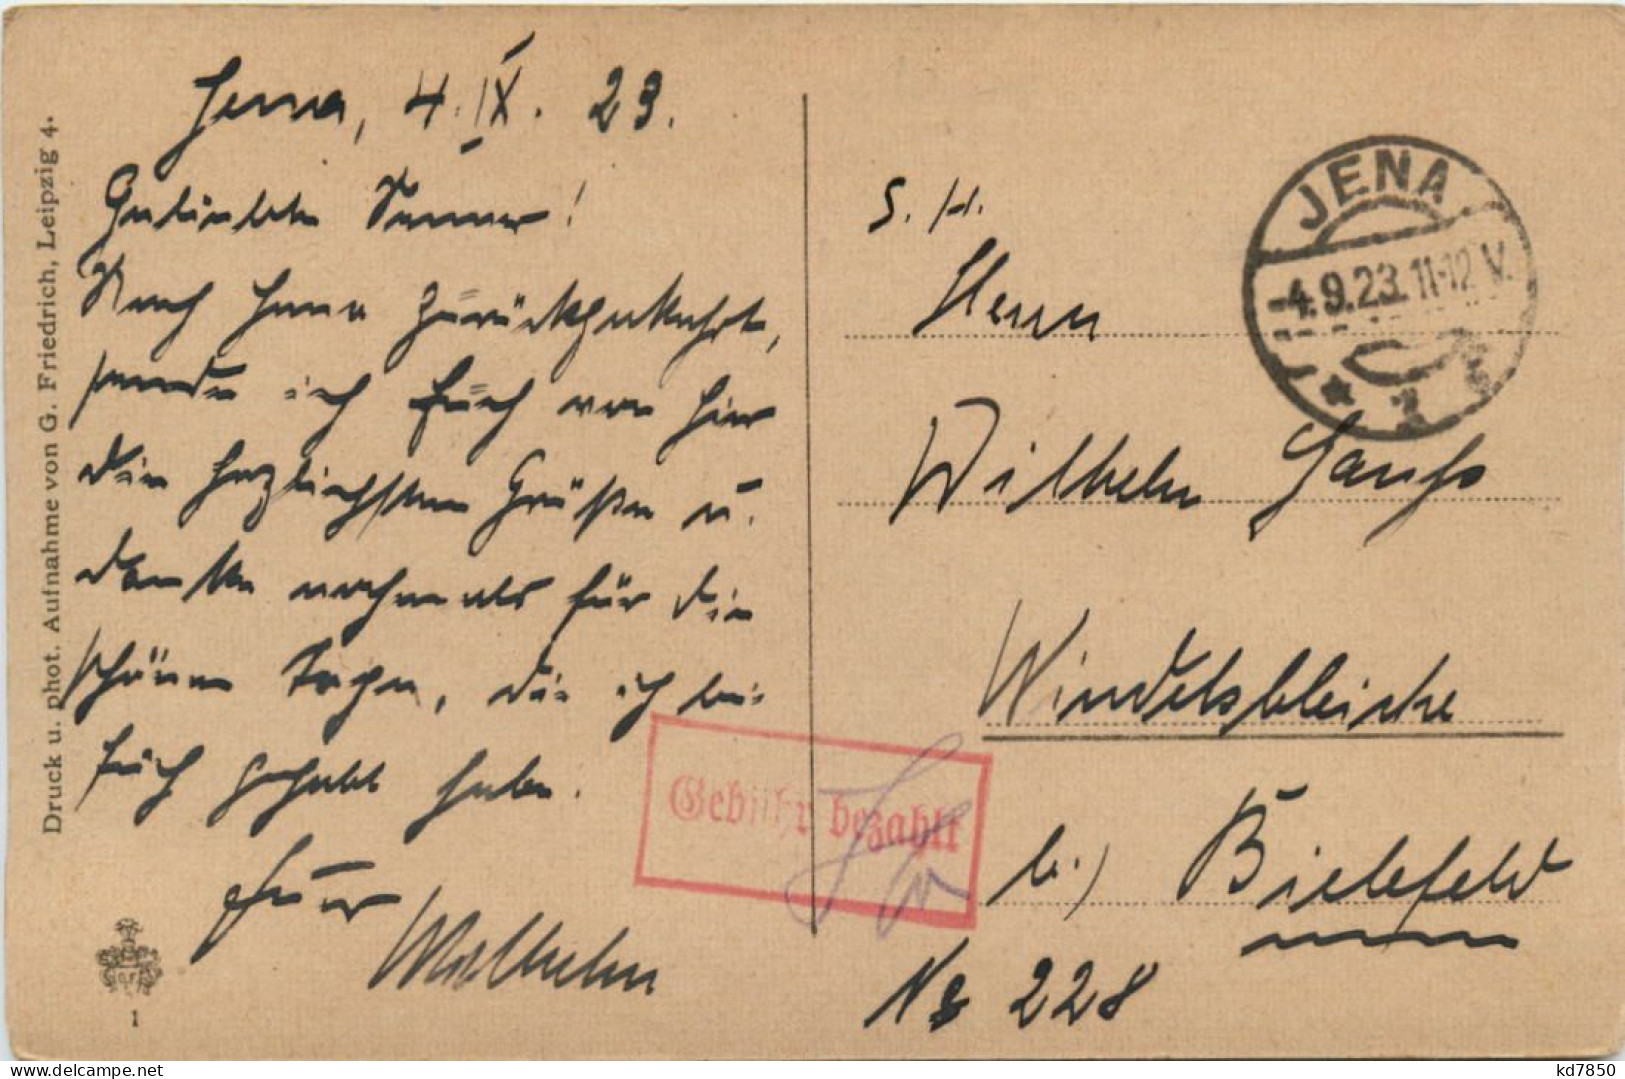 Jena, 4. IX. 23.
Geliebte Männer!
Nach Jena zurückgekehrt,
sende ich Euch von hier
die herzlichsten Grüße u.
danke nochmals für die
schönen Tage, die ich bei
Euch gehabt habe.
Euer
Wilhelm
Druck u. phot. Aufnahme von G. Friedrich, Leipzig 4.
1
S. H.
Herrn
Wilhelm
Windelsbleiche
b./ Bielefeld
No 228
JENA
-4.9.23. 11-12 V.
Gebühr bezahlt
kd7850